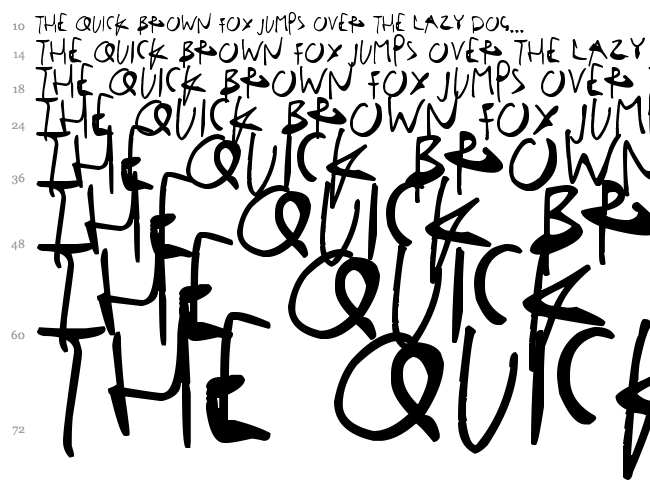 10 THE QUICK BROWN FOX JUMPS OVER THE LAZY DOG...
14 THE QUICK BROWN FOX JUMPS OVER THE LAZY
18 THE QUICK BROWN FOX JUMPS OVER T
24 THE QUICK BROWN FOX JUM
36 THE QUICK BROWN
48 THE QUICK BR
60 THE QUICK
72 THE QUIC